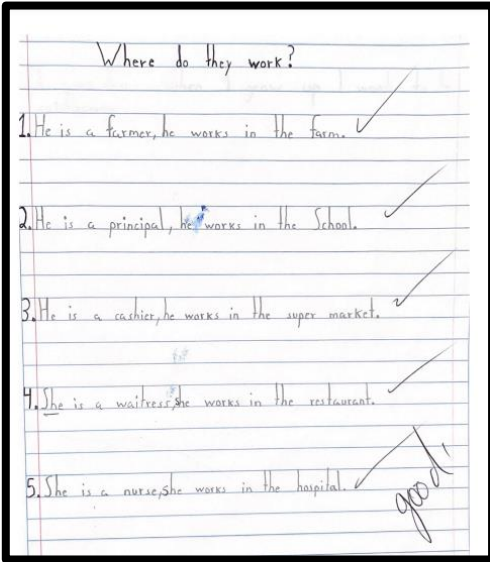 Where do they work?
1. He is a farmer, he works in the farm.
2. He is a principal, he works in the School.
3. He is a cashier, he works in the super market.
4. She is a waitress, she works in the restaurant.
5. She is a nurse, she works in the hospital.
good,